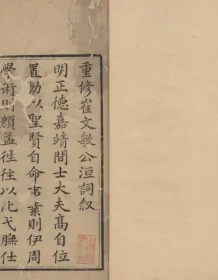 重修崔文敏公洹詞叙
明正德嘉靖間士大夫髙自位
置助以聖賢自命書業則伊周
學術則顔孟往往以化戈膴仕